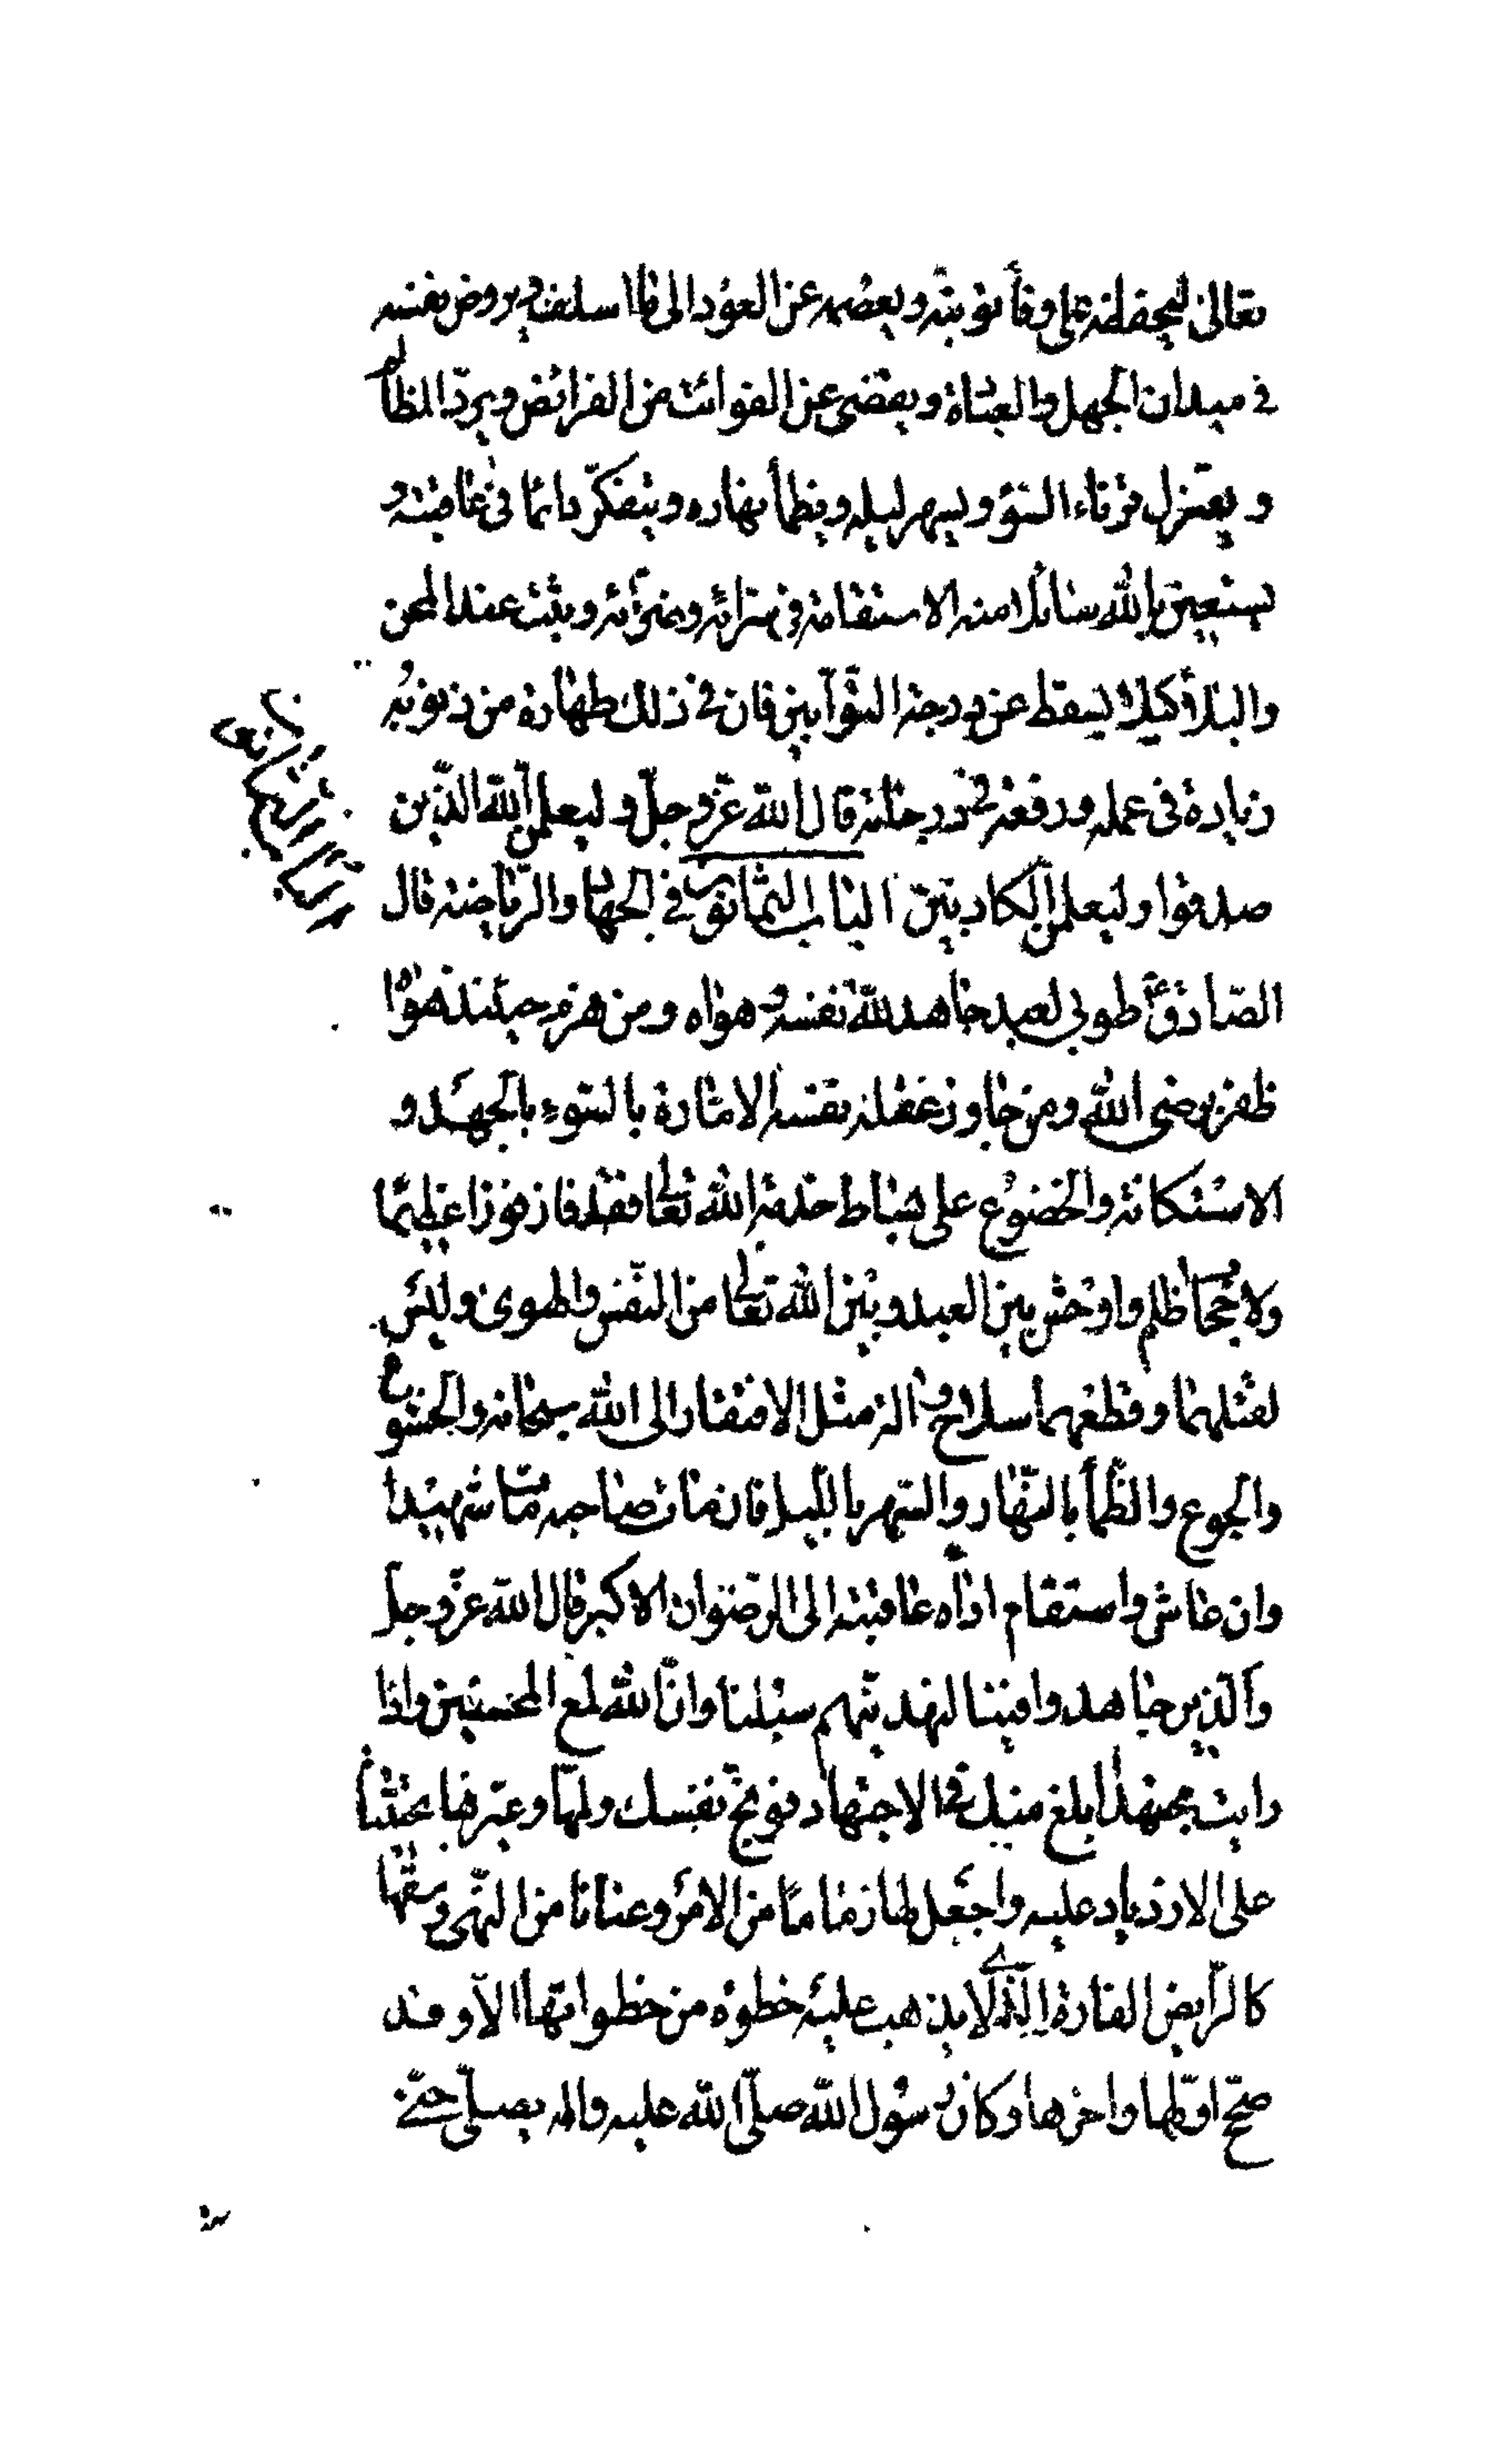 تعالى ليحفظه على وفاء توبته ويعصمه عن العود الى ما اسلف ويروض نفسه
في ميدان الجهل والعبادة ويقضى عن الفوائت من الفرائض ويرد المظالم
ويعتزل قرناء السوء ويسهر ليله ويظمأ نهاره ويتفكر دائما في عاقبته و
يستعين بالله سائلا منه الاستقامة في سرائه وضرائه ويثبت عند المحن
والبلاء كيلا يسقط عن درجة التوابين فان في ذلك طهارة من ذنوبه
وزيادة في عمله ورفعة في درجاته قال الله عز وجل وليعلمن الله الذين
صدقوا وليعلمن الكاذبين الباب الثمانون في الجهاد والرياضة قال
الصادق ع طوبى لعبد جاهد لله نفسه وهواه ومن هزم جند هواه
ظفر برضى الله ومن جاوز عقله نفسه الامارة بالسوء بالجهد و
الاستكانة والخضوع على بساط خدمة الله تعالى فقد فاز فوزا عظيما
ولا حجاب اظلم واوحش بين العبد وبين الله تعالى من النفس والهوى وليس
لقتلهما وقطعهما سلاح والة مثل الافتقار الى الله سبحانه والخشوع
والجوع والظمأ بالنهار والسهر بالليل فان مات صاحبه مات شهيدا
وان عاش واستقام اداه عاقبته الى الرضوان الاكبر قال الله عز وجل
والذين جاهدوا فينا لنهدينهم سبلنا وان الله لمع المحسنين واذا
رايت مجتهدا ابلغ منك في الاجتهاد فوبخ نفسك ولمها وعيرها تحثيثا
على الازدياد عليه واجعل لها زماما من الامر وعنانا من النهى وسقها
كالرايض الفاره الذي لا يذهب عليه خطوة من خطواتها الا وقد
صحح اولها واخرها وكان رسول الله صلى الله عليه واله يصلى حتى